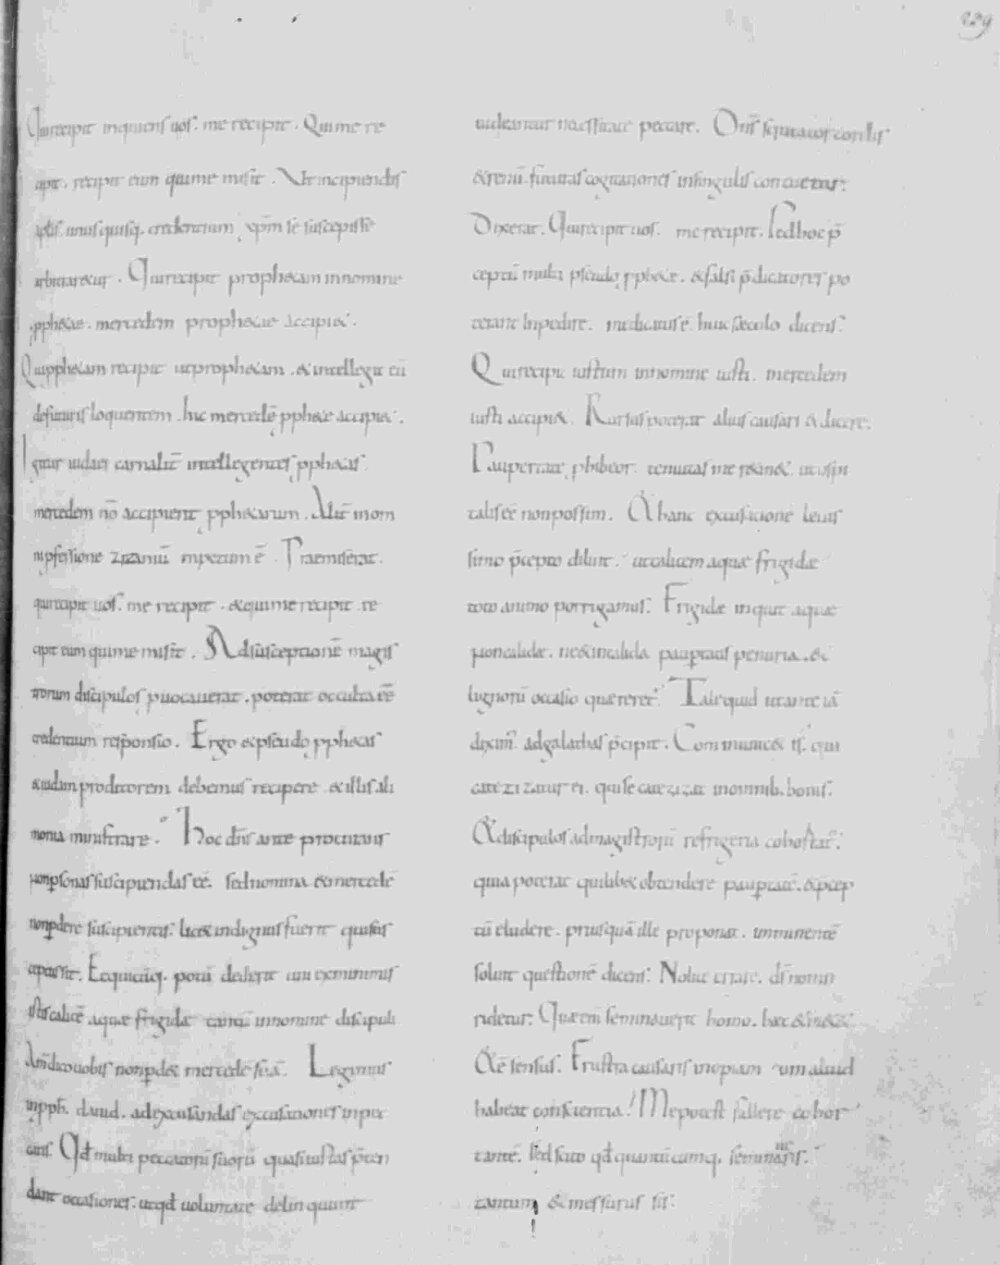 229
Qui recipit inquiens uos. me recipit. Qui me re
cipit. recipit eum qui me misit. Ut in cipiendis
aplis. unus quisq. credentium xpm̄ se suscepisse
arbitraretur. Qui recipit prophetam in nomine
pphetae. mercedem prophetae accipiet.
Qui pphetam recipit ut prophetam. & intellegit eū
de futuris loquentem. hic mercedē pphetae accipiet.
Igitur iudaei carnalit̄ intellegentes pphetas
mercedem nō accipient pphetarum. Alit̄ in om
ni pfessione zizaniū mixtum ē. Praemiserat.
qui recipit uos. me recipit. & qui me recipit re
cipit eum qui me misit. Ad susceptionē magis
trorum discipulos puocauerat. poterat occulta eē
credentium responsio. Ergo & pseudo pphetas
& iudam proditorem debemus recipere & illis ali
monia ministrare. Hoc dn̄s ante procurans
non psonas suscipiendas eē. sed nomina & mercedē
non pdere suscipientis. licet indignus fuerit qui sus
ceptus sit. Et quicūq. potū dederit uni ex minimis
istis calicē aquae frigidae tantū in nomine discipuli
Am̄ dico uobis non pdet mercedē suā. Legimus
in pph. dauid. ad excusandas excusationes in pec
catis. Qđ multi peccatorū suorū quasi iustas p̄ten
dant occasiones. ut qđ uoluntate delinquunt
uideantur necessitate peccare. Dn̄s scrutator cordis
& renū. futuras cogitationes in singulis contuetur.
Dixerat. Qui recipit uos. me recipit. Sed hoc p̄
ceptū multi pseudo pphetae. & falsi p̄dicatores po
terant inpedire. medicatus ē huic sæculo dicens.
Qui recipit iustum in nomine iusti. mercedem
iusti accipiet. Rursus poterat alius causari & dicere.
Paupertate phibeor. tenuitas me retinet. ut ospi
talis eē non possim. & hanc excusatione leuis
simo p̄cepto diluit. ut calicem aquae frigidae
toto animo porrigamus. Frigidae inquit aquae
non calidae. ne & in calida paupertatis penuria. &
lignorū occasio quaereret. Tale quid ut ante iā
diximꝰ. ad galathas p̄cipit. Communicet is. qui
catezizatur ei. qui se catezizat in omnib. bonis.
& discipulos ad magistrorū refrigeria cohortat̄.
quia poterat quilibet obtendere paupertatē. & p̄cep
tū eludere. priusquā ille proponat. imminentē
soluit questionē dicens. Nolite errare. ds̄ non in
ridetur. Quae enī seminauerit homo. haec & metet.
& ē sensus. Frustra causaris inopiam cum aliud
habeat conscientia. Me potest fallere cohor
tantē. sed scito qđ quantūcumq. seminaris.
tantum & messurus sis.